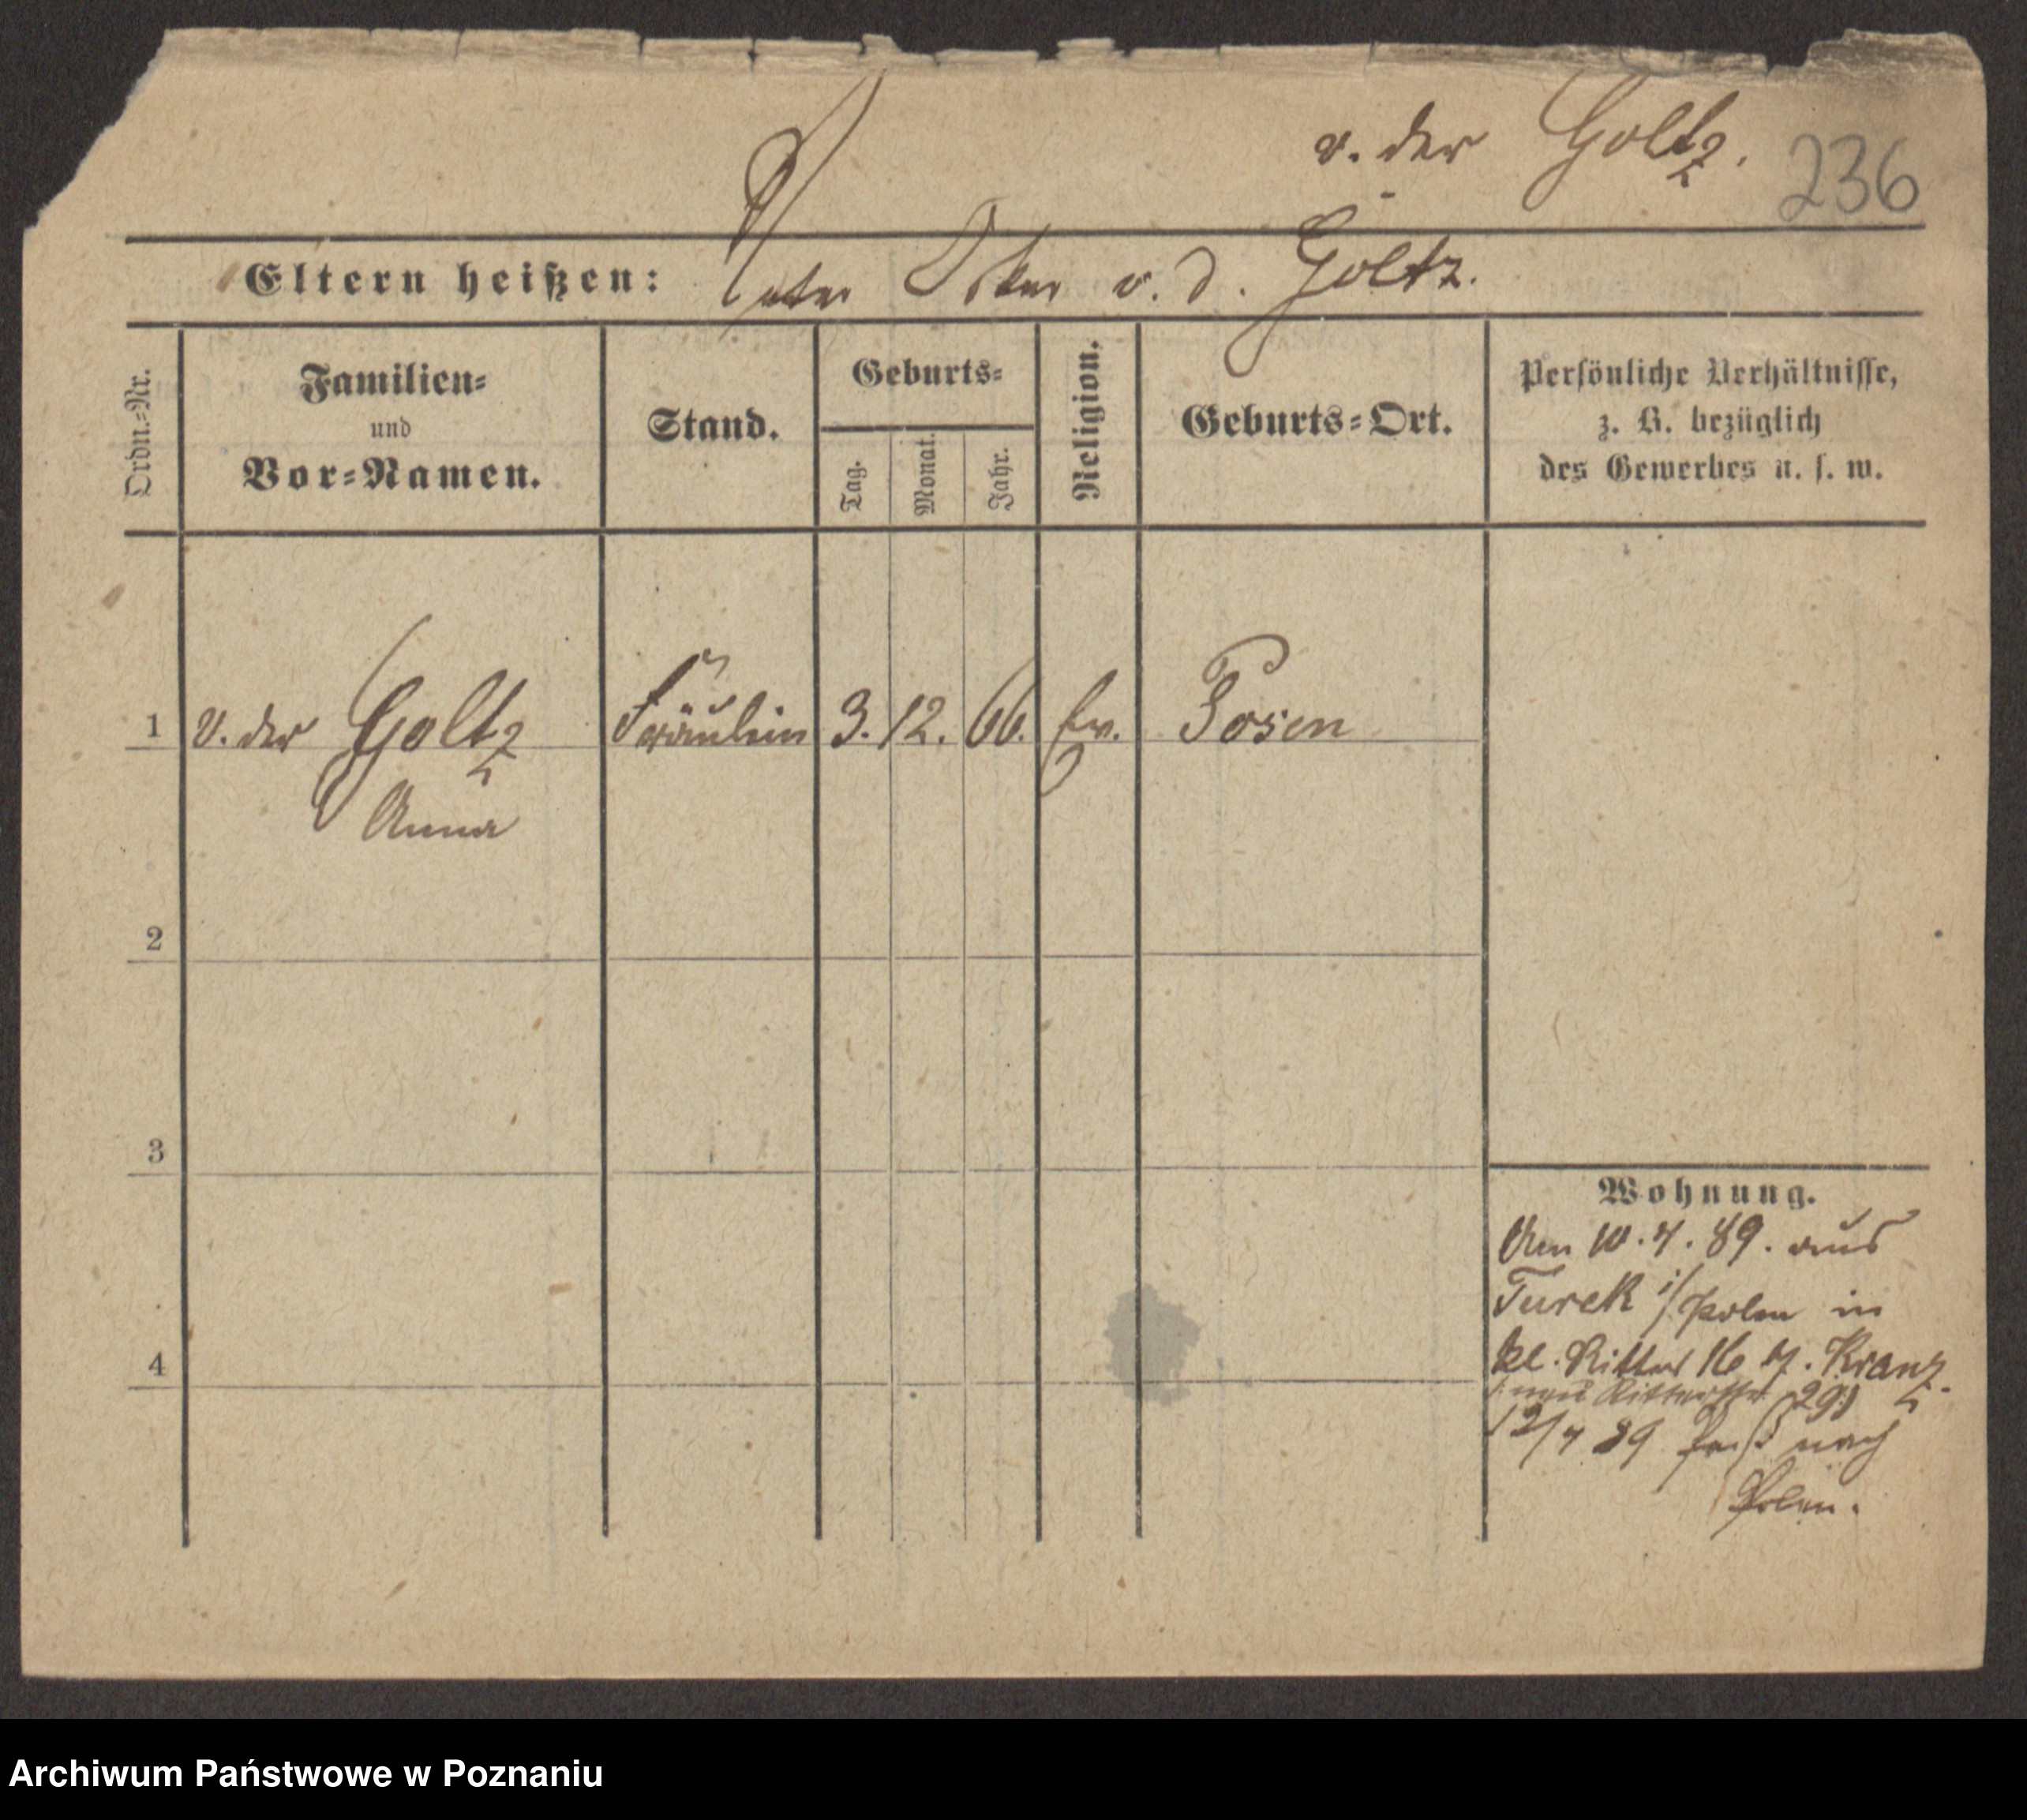 v. der Goltz.
236
Eltern heißen: Vater Oskar v. d. Goltz.
Ordn.-Nr.
Familien-
und
Vor-Namen.
Stand.
Geburts-
Tag.
Monat.
Jahr.
Religion.
Geburts-Ort.
Persönliche Verhältnisse,
z. B. bezüglich
des Gewerbes u. s. w.
1 v. der Goltz Fräulein 3. 12. 66. Ev. Posen
Anna
2
3
4
Wohnung.
Am 10.4.89. aus
Turek i/Polen in
kl. Ritter 16 b. Kranz.
neu Ritterstr. 29
12/4 89 nach
Polen.
Archiwum Państwowe w Poznaniu